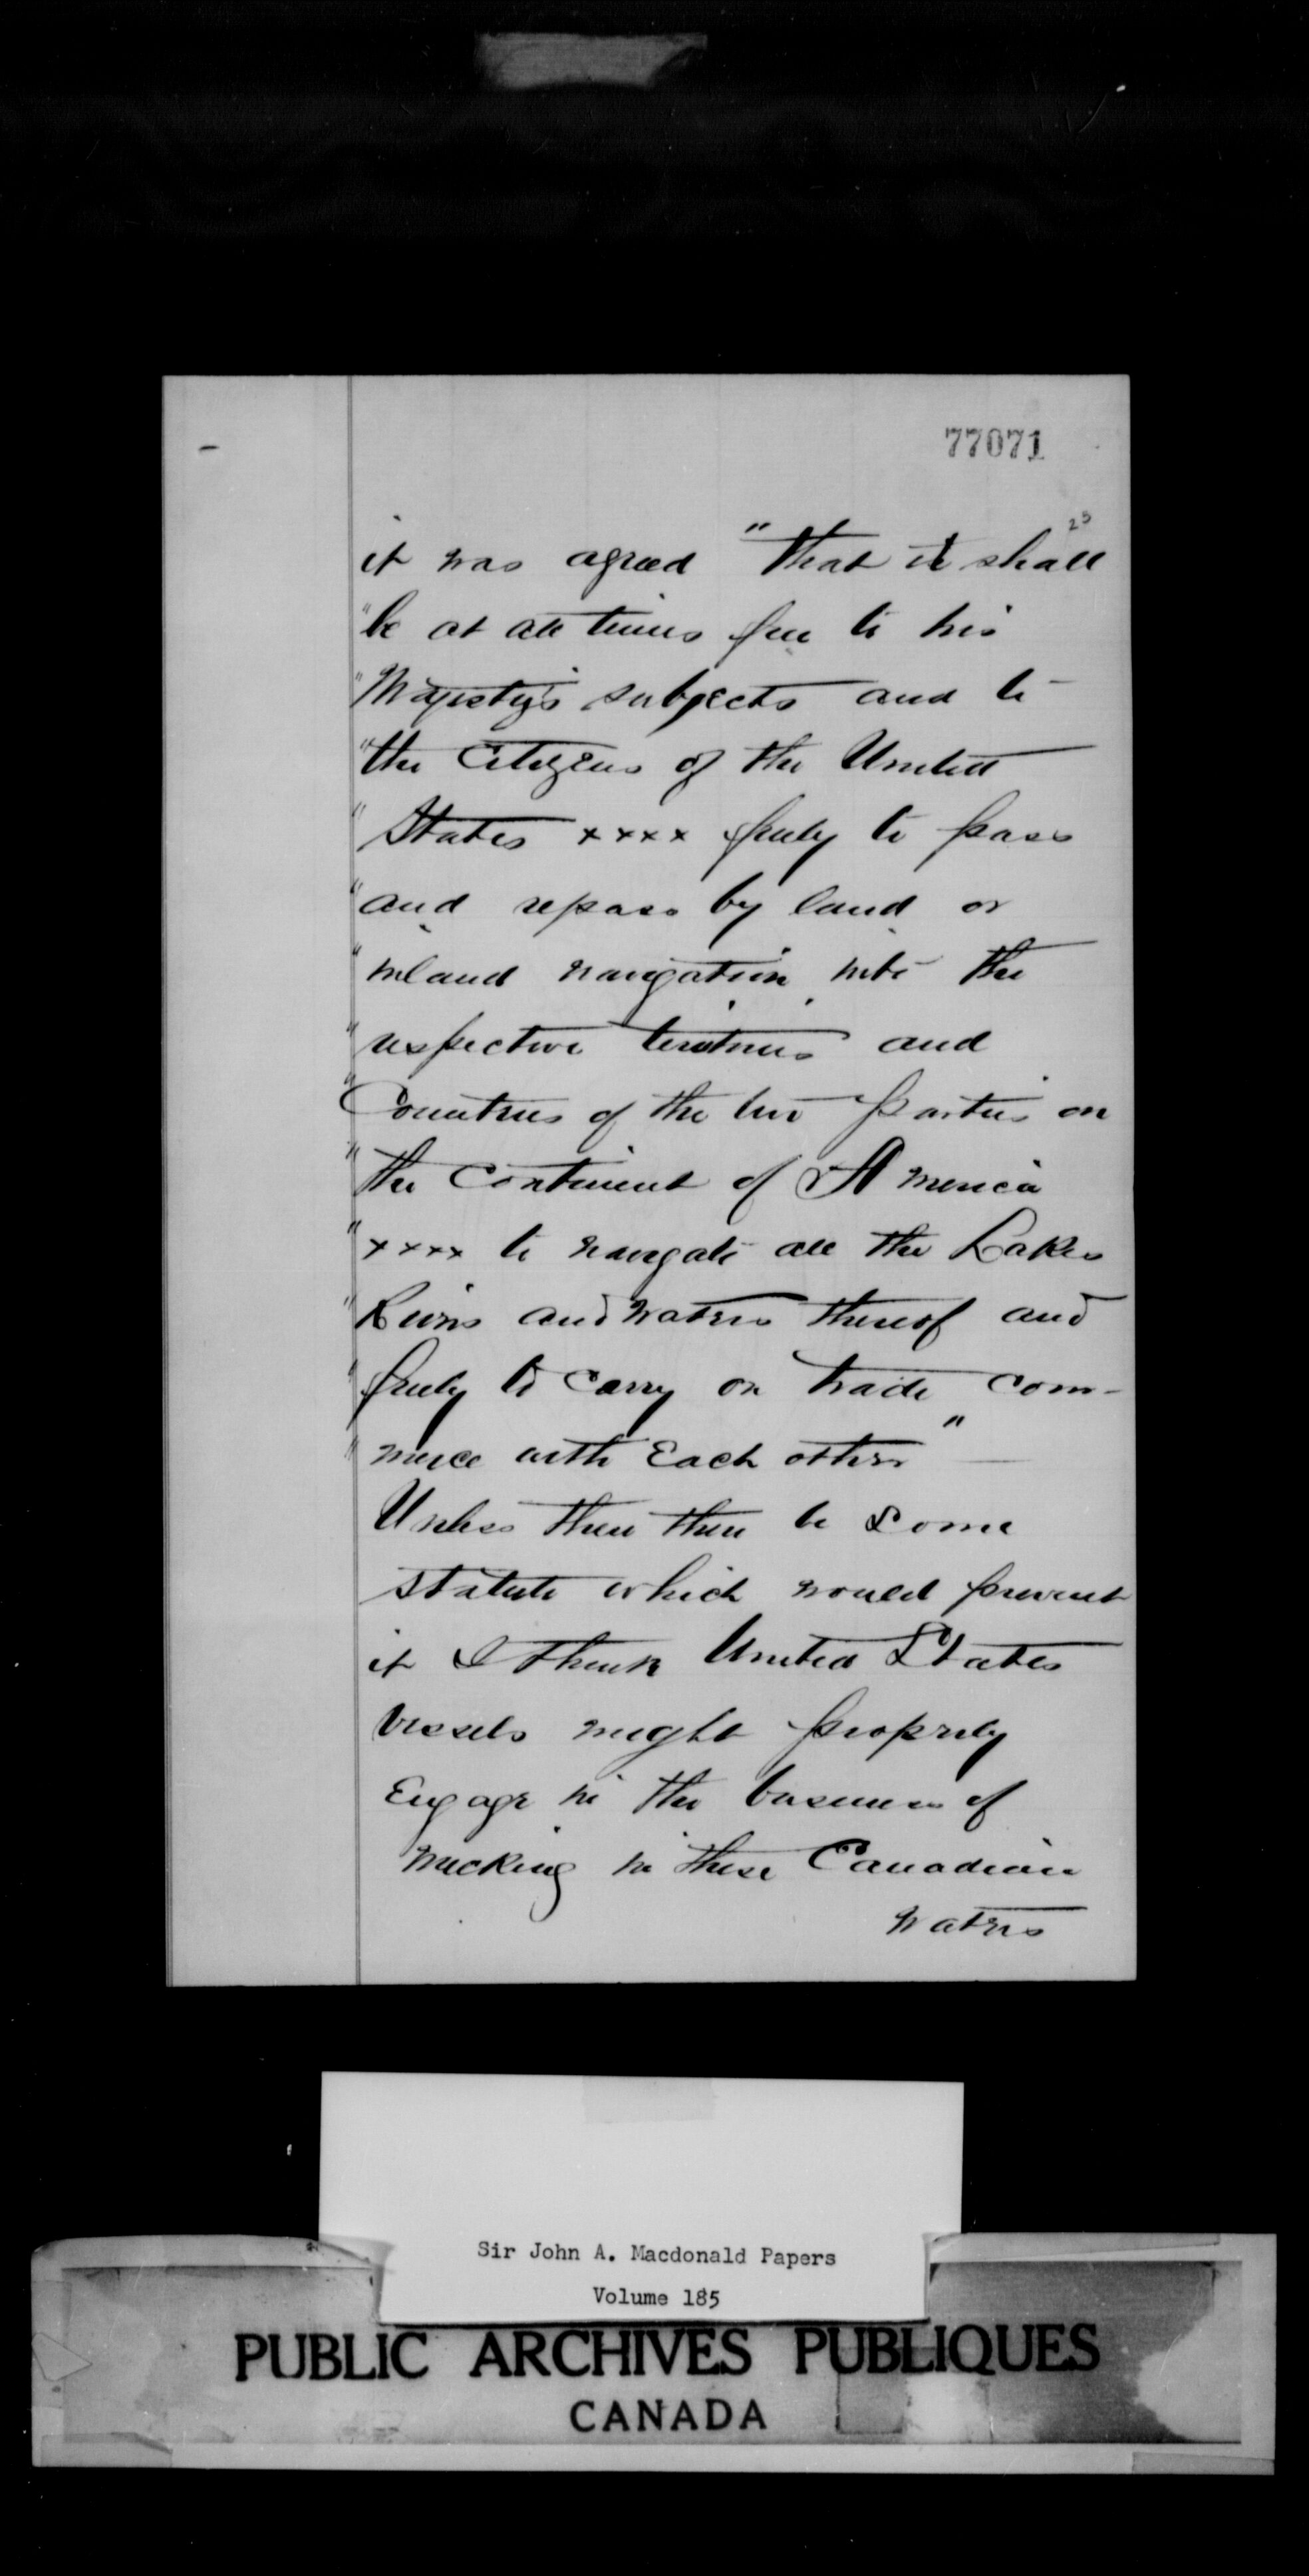 77071
23
it was agreed "that it shall
"be at all times free to his
"Majesty's subjects and to
"the Citizens of the United
"States xxxx freely to pass
"and repass by land or
"inland navigation into the
"respective territories and
"Countries of the two parties on
"the Continent of America
"xxxx to navigate all the Lakes
"Rivers and waters thereof and
"freely to carry on trade com-
"merce with Each other"
Unless then there be some
statute which would prevent
it I think United States
vessels might properly
Engage in the business of
wrecking in these Canadian
waters
Sir John A. Macdonald Papers
Volume 185
PUBLIC ARCHIVES PUBLIQUES
CANADA